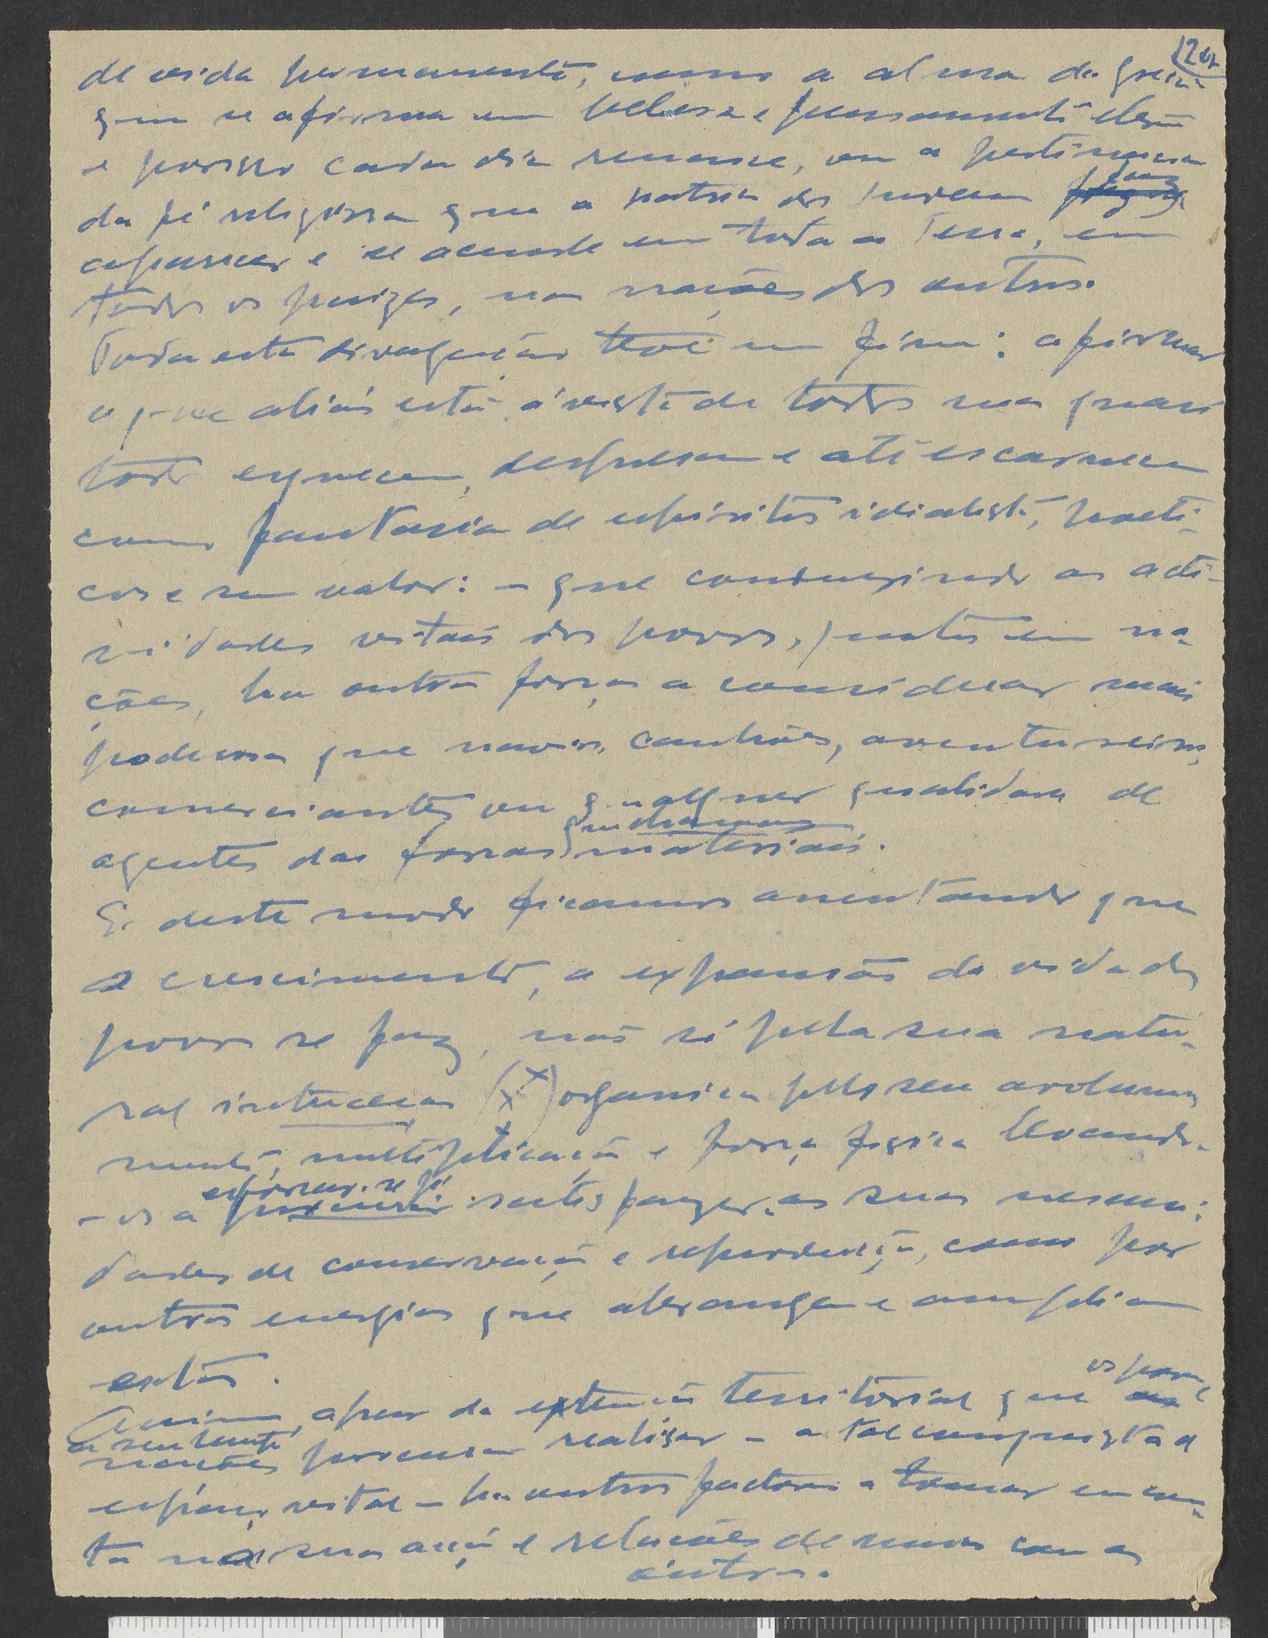 de vida permanente, como a alma da Grecia
que se afirma em beleza e pensamento
e por isso cada dia renasce, ou a pertinacia
da fé religiosa que a patria dos judeus faz
e se acende em toda a Terra, em
todos os paizes, nas nações dos outros.
Toda esta divagação teve um fim: afirmar
o que aliás está á vista de todos mas quasi
todos esquecem, despresam e até escarnecem
como fantasia de espiritos idialista, poeti-
cos e sem valor: – que condusindo as acti-
vidades vitais dos povos, juntos em na-
ções, ha outra força a considerar mais
poderosa que navios, canhões, aventureiros,
comerciantes ou qualquer qualidade de
agentes das forças materiais.
E deste modo ficamos assentando que
o crescimento, a expansão da vida dos
povos se faz, não só pela sua natu-
ral (x) organica pelo seu avoluma-
mento, multiplicação e força fisica levando-
-os a esforçar-se por satisfazer as suas necessi-
dades de conservação e reprodução, como por
outras energias que abrangem e ampliam
estas.
Assim, apesar da extensão territorial que os povos
procuram realisar – a tal conquista de
espaço vital – ha outros factores a tomar em con-
ta na sua acção e relações de umas com as
outras.